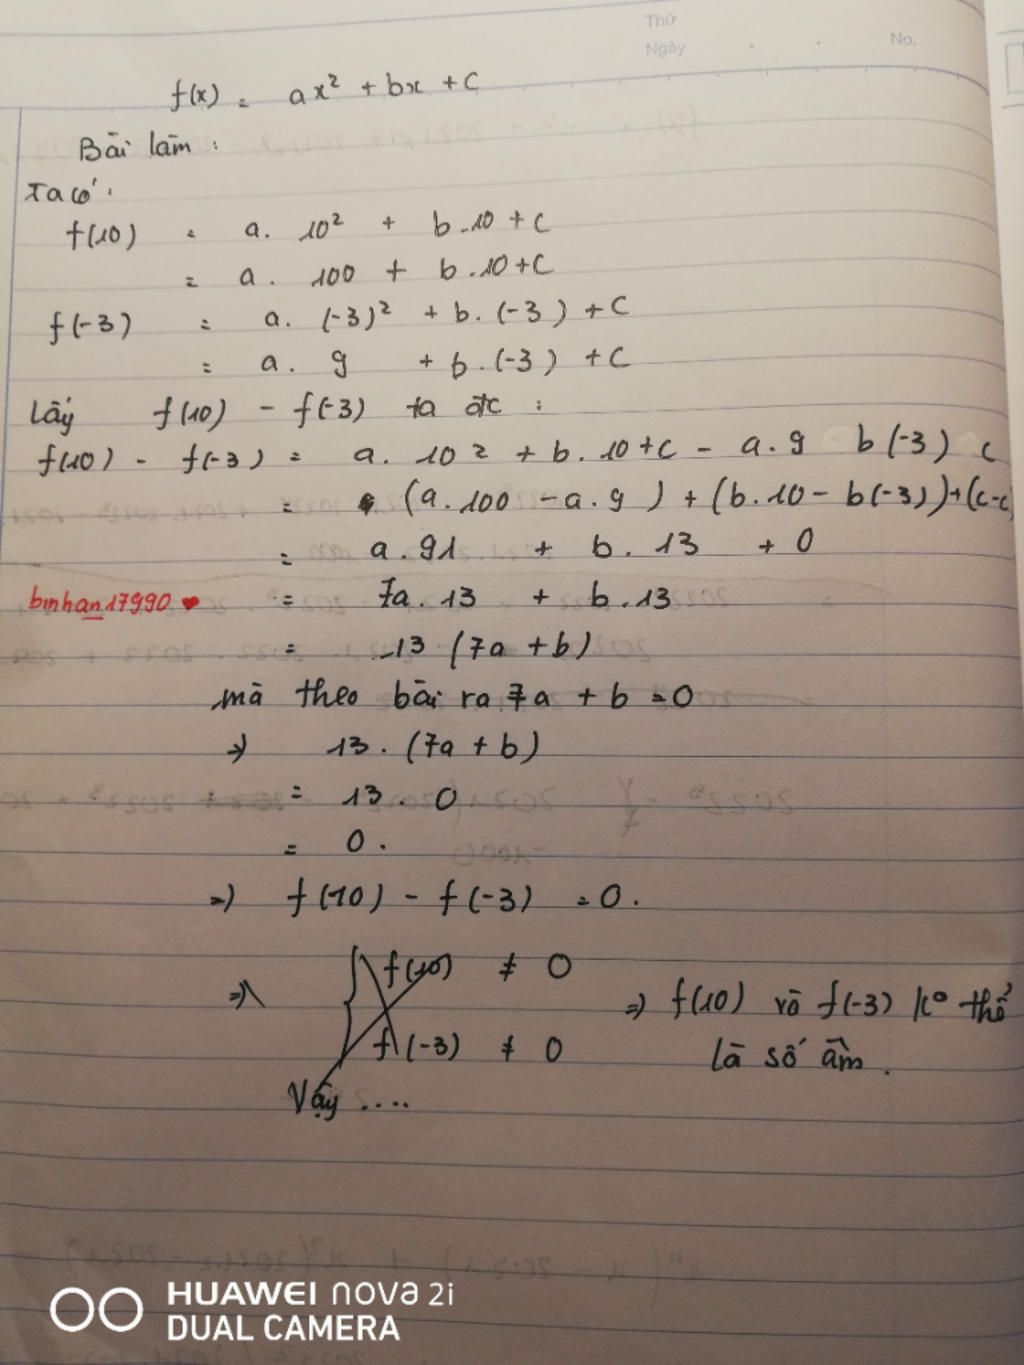 Thứ
Ngày . . No.
f(x) = ax² + bx + c
Bài làm :
Ta có :
f(10) = a. 10² + b.10 + c
= a. 100 + b.10 + c
f(-3) = a. (-3)² + b. (-3) + c
= a. 9 + b. (-3) + c
lấy f(10) - f(-3) ta đc :
f(10) - f(-3) = a. 10² + b. 10 + c - a. 9 b(-3) c
= (a.100 - a.9) + (b.10 - b(-3)) + (c-c
= a.91 + b. 13 + 0
binhan17990 ❤ = 7a. 13 + b.13
= 13 (7a + b)
mà theo bài ra 7a + b = 0
=> 13. (7a + b)
= 13. 0
= 0.
=> f(10) - f(-3) = 0.
=> f(10) ≠ 0
f(-3) ≠ 0
=> f(10) và f(-3) k° thể
là số âm.
Vậy ....
HUAWEI nova 2i
DUAL CAMERA